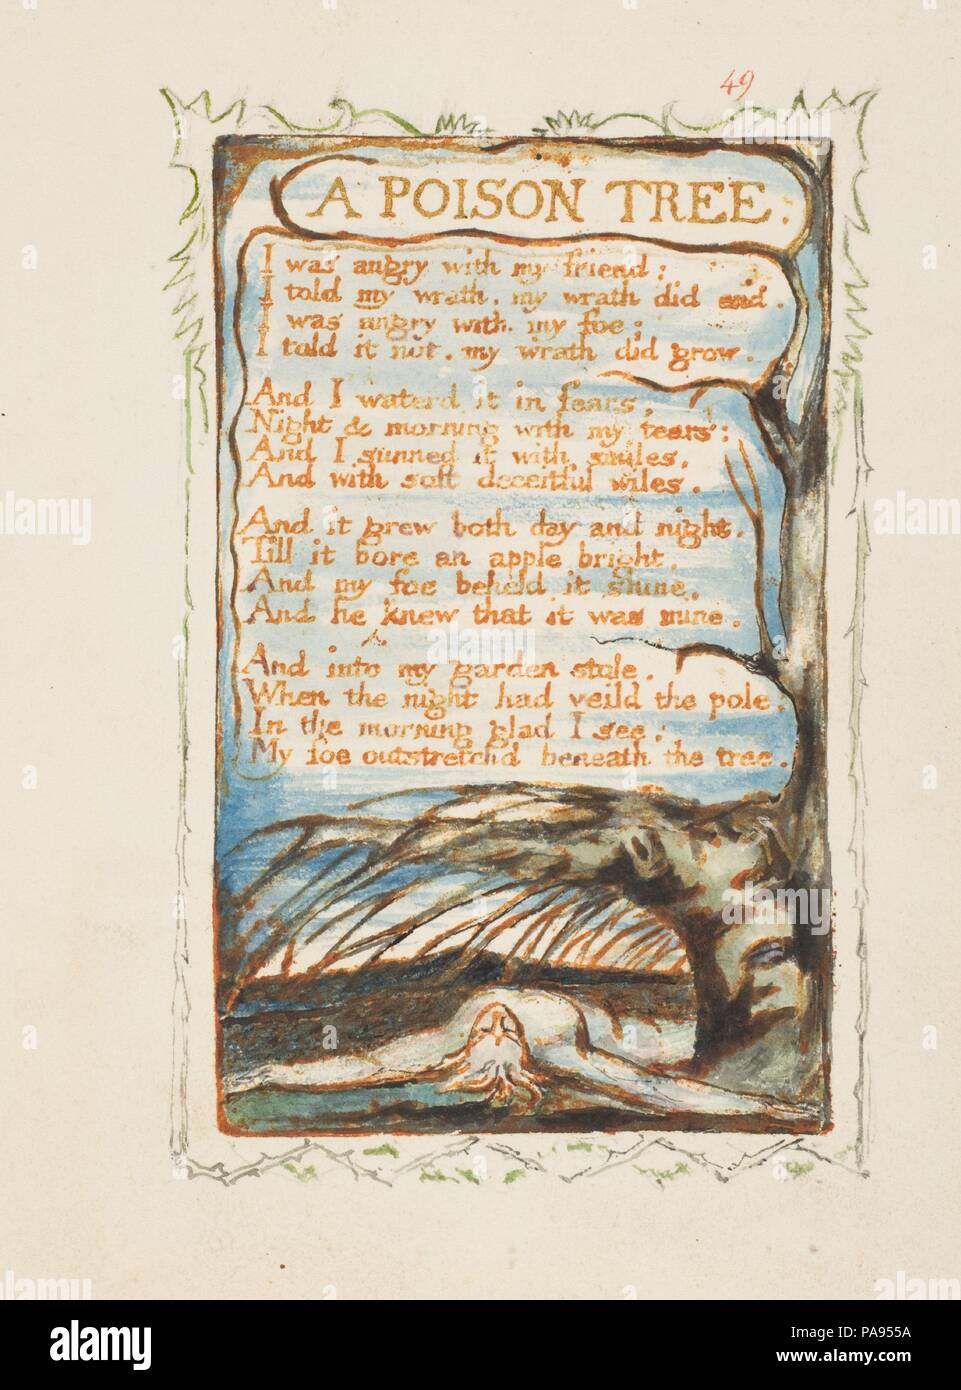 49
A POISON TREE.
I was angry with my friend;
I told my wrath. my wrath did end.
I was angry with my foe;
I told it not. my wrath did grow.
And I waterd it in fears,
Night & morning with my tears;
And I sunned it with smiles,
And with soft deceitful wiles.
And it grew both day and night.
Till it bore an apple bright.
And my foe beheld it shine.
And he knew that it was mine.
And into my garden stole.
When the night had veild the pole;
In the morning glad I see;
My foe outstretchd beneath the tree.
alamy
alamy
alamy
a
a
a
a
alamy
Image ID: PA955A
www.alamy.com